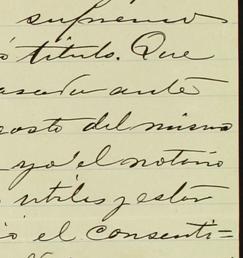 supremo
título. Que
ante
gosto del mismo
yo el notario
utiles y estar
ó el consenti=